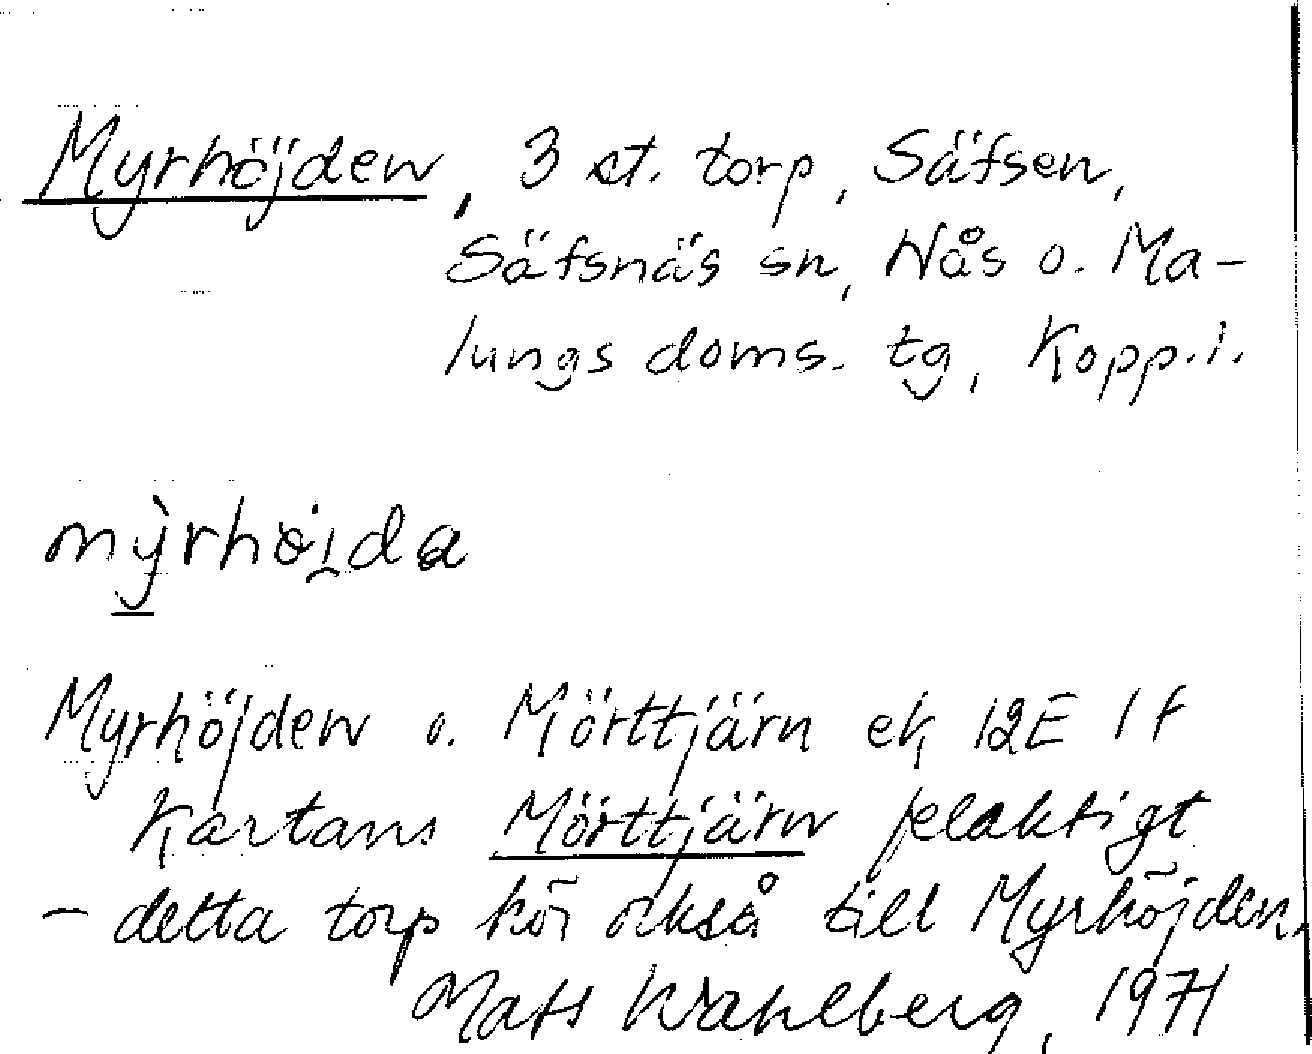 Myrhöjden, 3 st. torp, Säfsen,
Säfsnäs sn, Nås o. Ma-
lungs doms. tg, Kopp. l.
mỳrhöi̯da
Myrhöjden o. Mörttjärn ek 12E 1f
Kartans Mörttjärn felaktigt
- detta torp hör också till Myrhöjden.
Mats Wahlberg, 1971